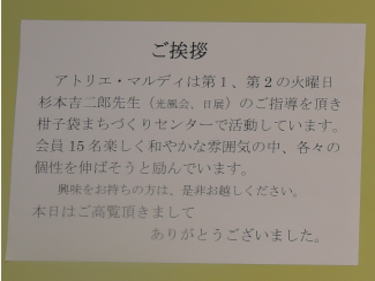 ご挨拶
アトリエ・マルディは第1、第2の火曜日
杉本吉二郎先生（光風会、日展）のご指導を頂き
柑子袋まちづくりセンターで活動しています。
会員15名楽しく和やかな雰囲気の中、各々の
個性を伸ばそうと励んでいます。
興味をお持ちの方は、是非お越しください。
本日はご高覧頂きまして
ありがとうございました。